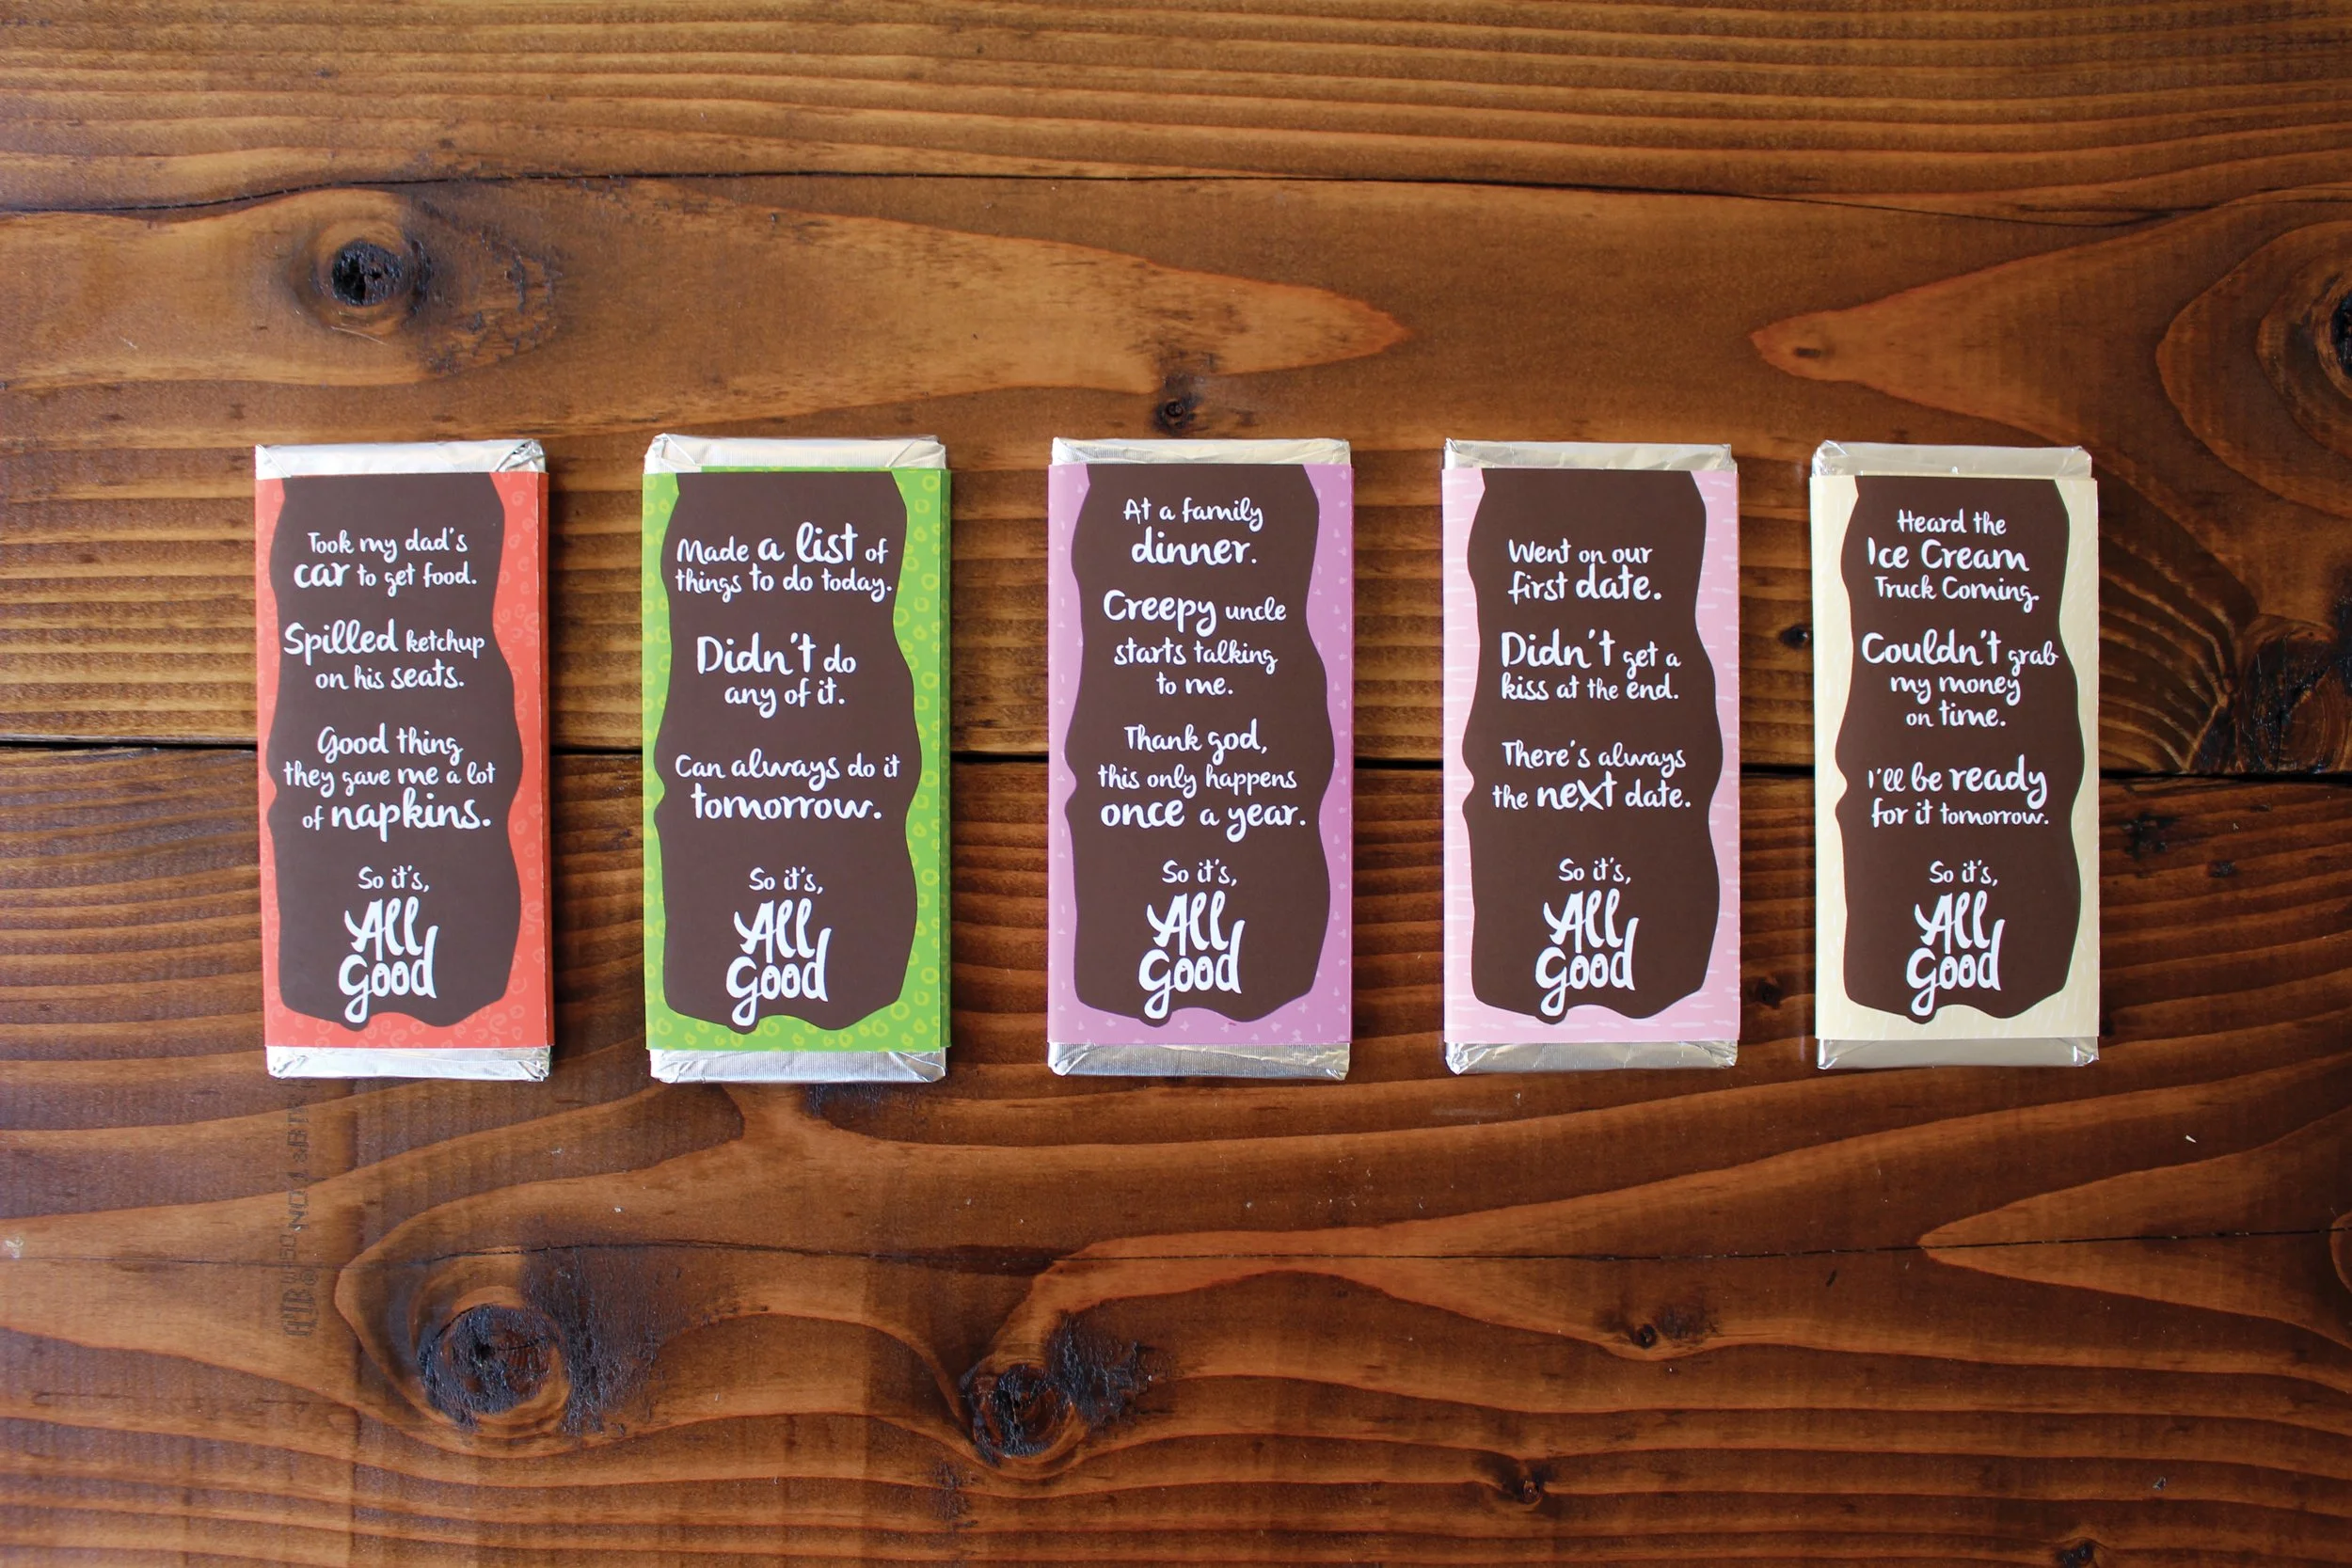 Took my dad's
car to get food.
Spilled ketchup
on his seats.
Good thing
they gave me a lot
of napkins.
So it's,
All
Good
Made a list of
things to do today.
Didn't do
any of it.
Can always do it
tomorrow.
So it's,
All
Good
At a family
dinner.
Creepy uncle
starts talking
to me.
Thank god,
this only happens
once a year.
So it's,
All
Good
Went on our
first date.
Didn't get a
kiss at the end.
There's always
the next date.
So it's,
All
Good
Heard the
Ice Cream
Truck Coming.
Couldn't grab
my money
on time.
I'll be ready
for it tomorrow.
So it's,
All
Good